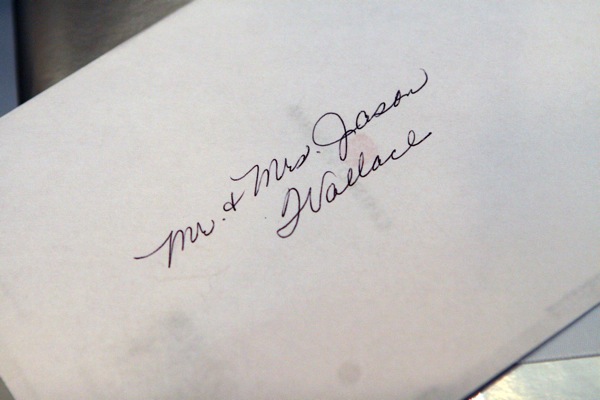 Mr. & Mrs. Jason
Wallace